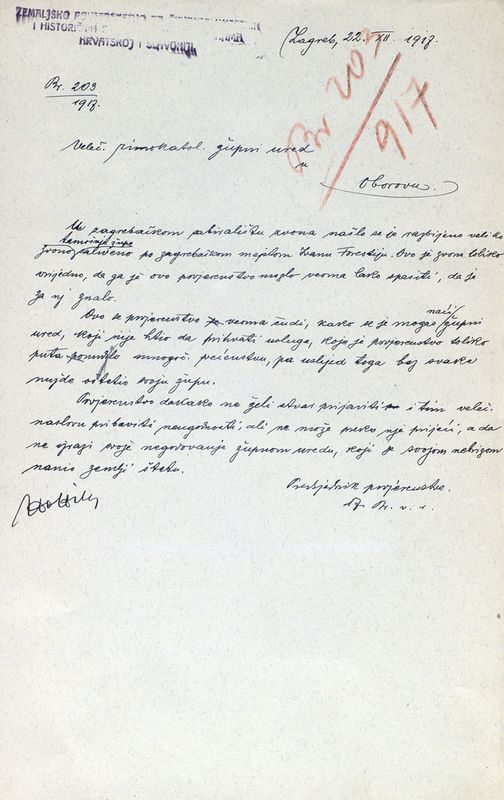 ZEMALJSKO POVJERENSTVO
I HISTORIČKIH
HRVATSKOJ I SLAVONIJI
Zagreb, 22. XII. 1917.
Br. 203
1917.
Br 203
917
Veleč. rimokatol. župni ured
u
Oborovu.
U zagrebačkom sabiralištu zvona našlo se je razbijeno veliko
tamošnje župe
zvono saliveno po zagrebačkom meštom Ivanu Forestiju. Ovo je zvono toliko
vrijedno, da ga je ovo povjerenstvo moglo veoma lako spasiti, da je
za nj znalo.
Ovo se povjerenstvo veoma čudi, kako se je mogao naći župni
ured, koji nije htio da prihvati usluge, koje je povjerenstvo toliko
puta ponudilo mnogoč. svećenstvu, pa uslijed toga bez svake
nužde oštetio svoju župu.
Povjerenstvo dakako ne želi stvar prijaviti i tim veleč.
naslovu pribaviti neugodnosti; ali ne može preko nje prijeći, a da
ne izrazi svoje negodovanje župnom uredu, koji je svojom nebrigom
nanio zemlji štetu.
Predsjednik povjerenstva.
Br. v. r.